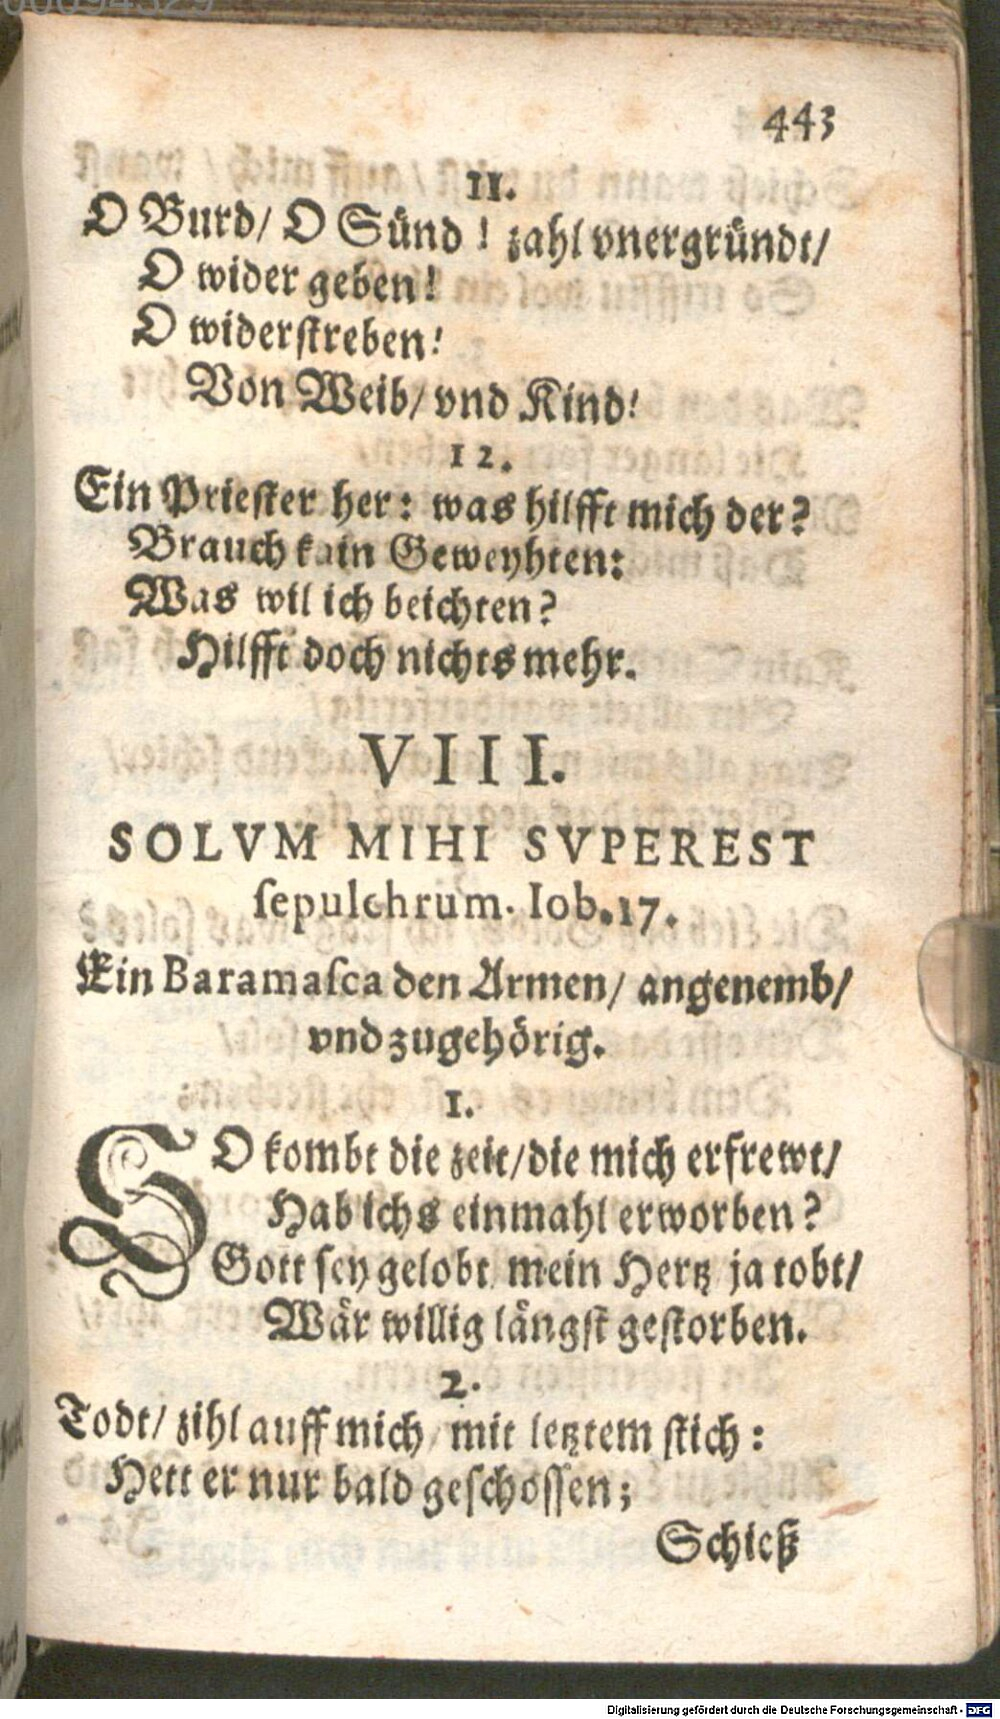 443
11.
O Burd/ O Sünd! zahl vnergründt/
O wider geben!
O widerstreben!
Von Weib/ vnd Kind!
12.
Ein Priester her: was hilfft mich der?
Brauch kain Geweyhten:
Was wil ich beichten?
Hilfft doch nichts mehr.
VIII.
SOLVM MIHI SVPEREST
sepulchrum. Iob. 17.
Ein Baramasca den Armen/ angenemb/
vnd zugehörig.
1.
SO kombt die zeit/ die mich erfrewt/
Hab ichs einmahl erworben?
Gott sey gelobt mein Hertz ja tobt/
Wär willig längst gestorben.
2.
Todt/ zihl auff mich/ mit letztem stich:
Hett er nur bald geschossen;
Schieß
Digitalisierung gefördert durch die Deutsche Forschungsgemeinschaft - DFG